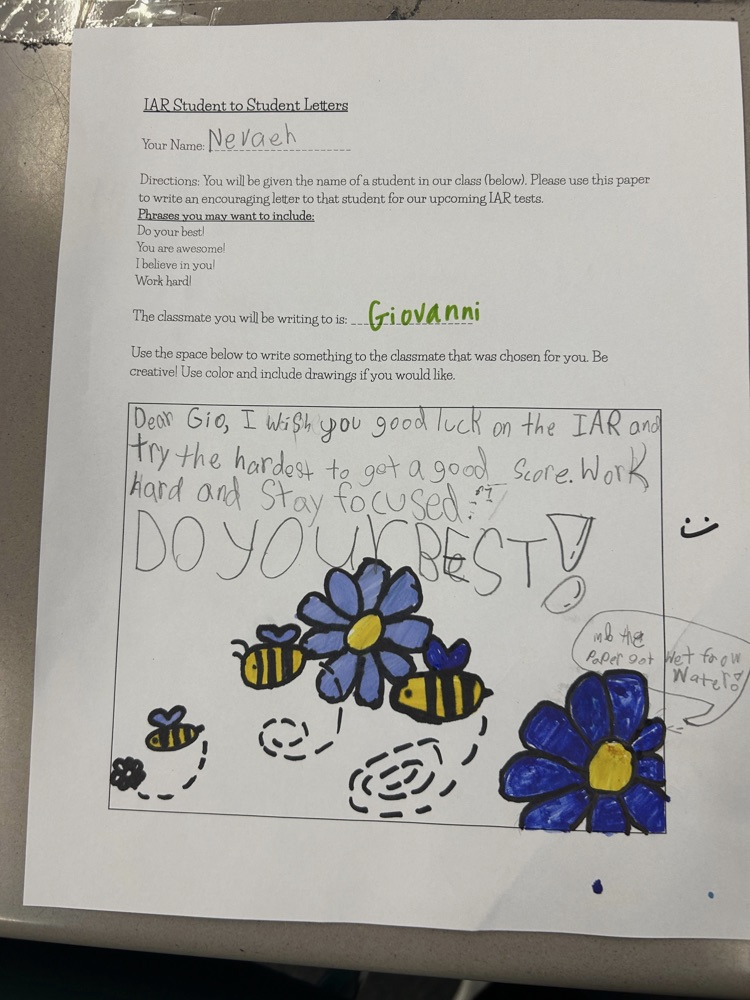 IAR Student to Student Letters
Your Name: Nevaeh
Directions: You will be given the name of a student in our class (below). Please use this paper
to write an encouraging letter to that student for our upcoming IAR tests.
Phrases you may want to include:
Do your best!
You are awesome!
I believe in you!
Work hard!
The classmate you will be writing to is: Giovanni
Use the space below to write something to the classmate that was chosen for you. Be
creative! Use color and include drawings if you would like.
Dear Gio, I wish you good luck on the IAR and
try the hardest to get a good score. Work
Hard and Stay focused.
DO YOUR BEST!
:)
mb the
Paper got wet from
Water